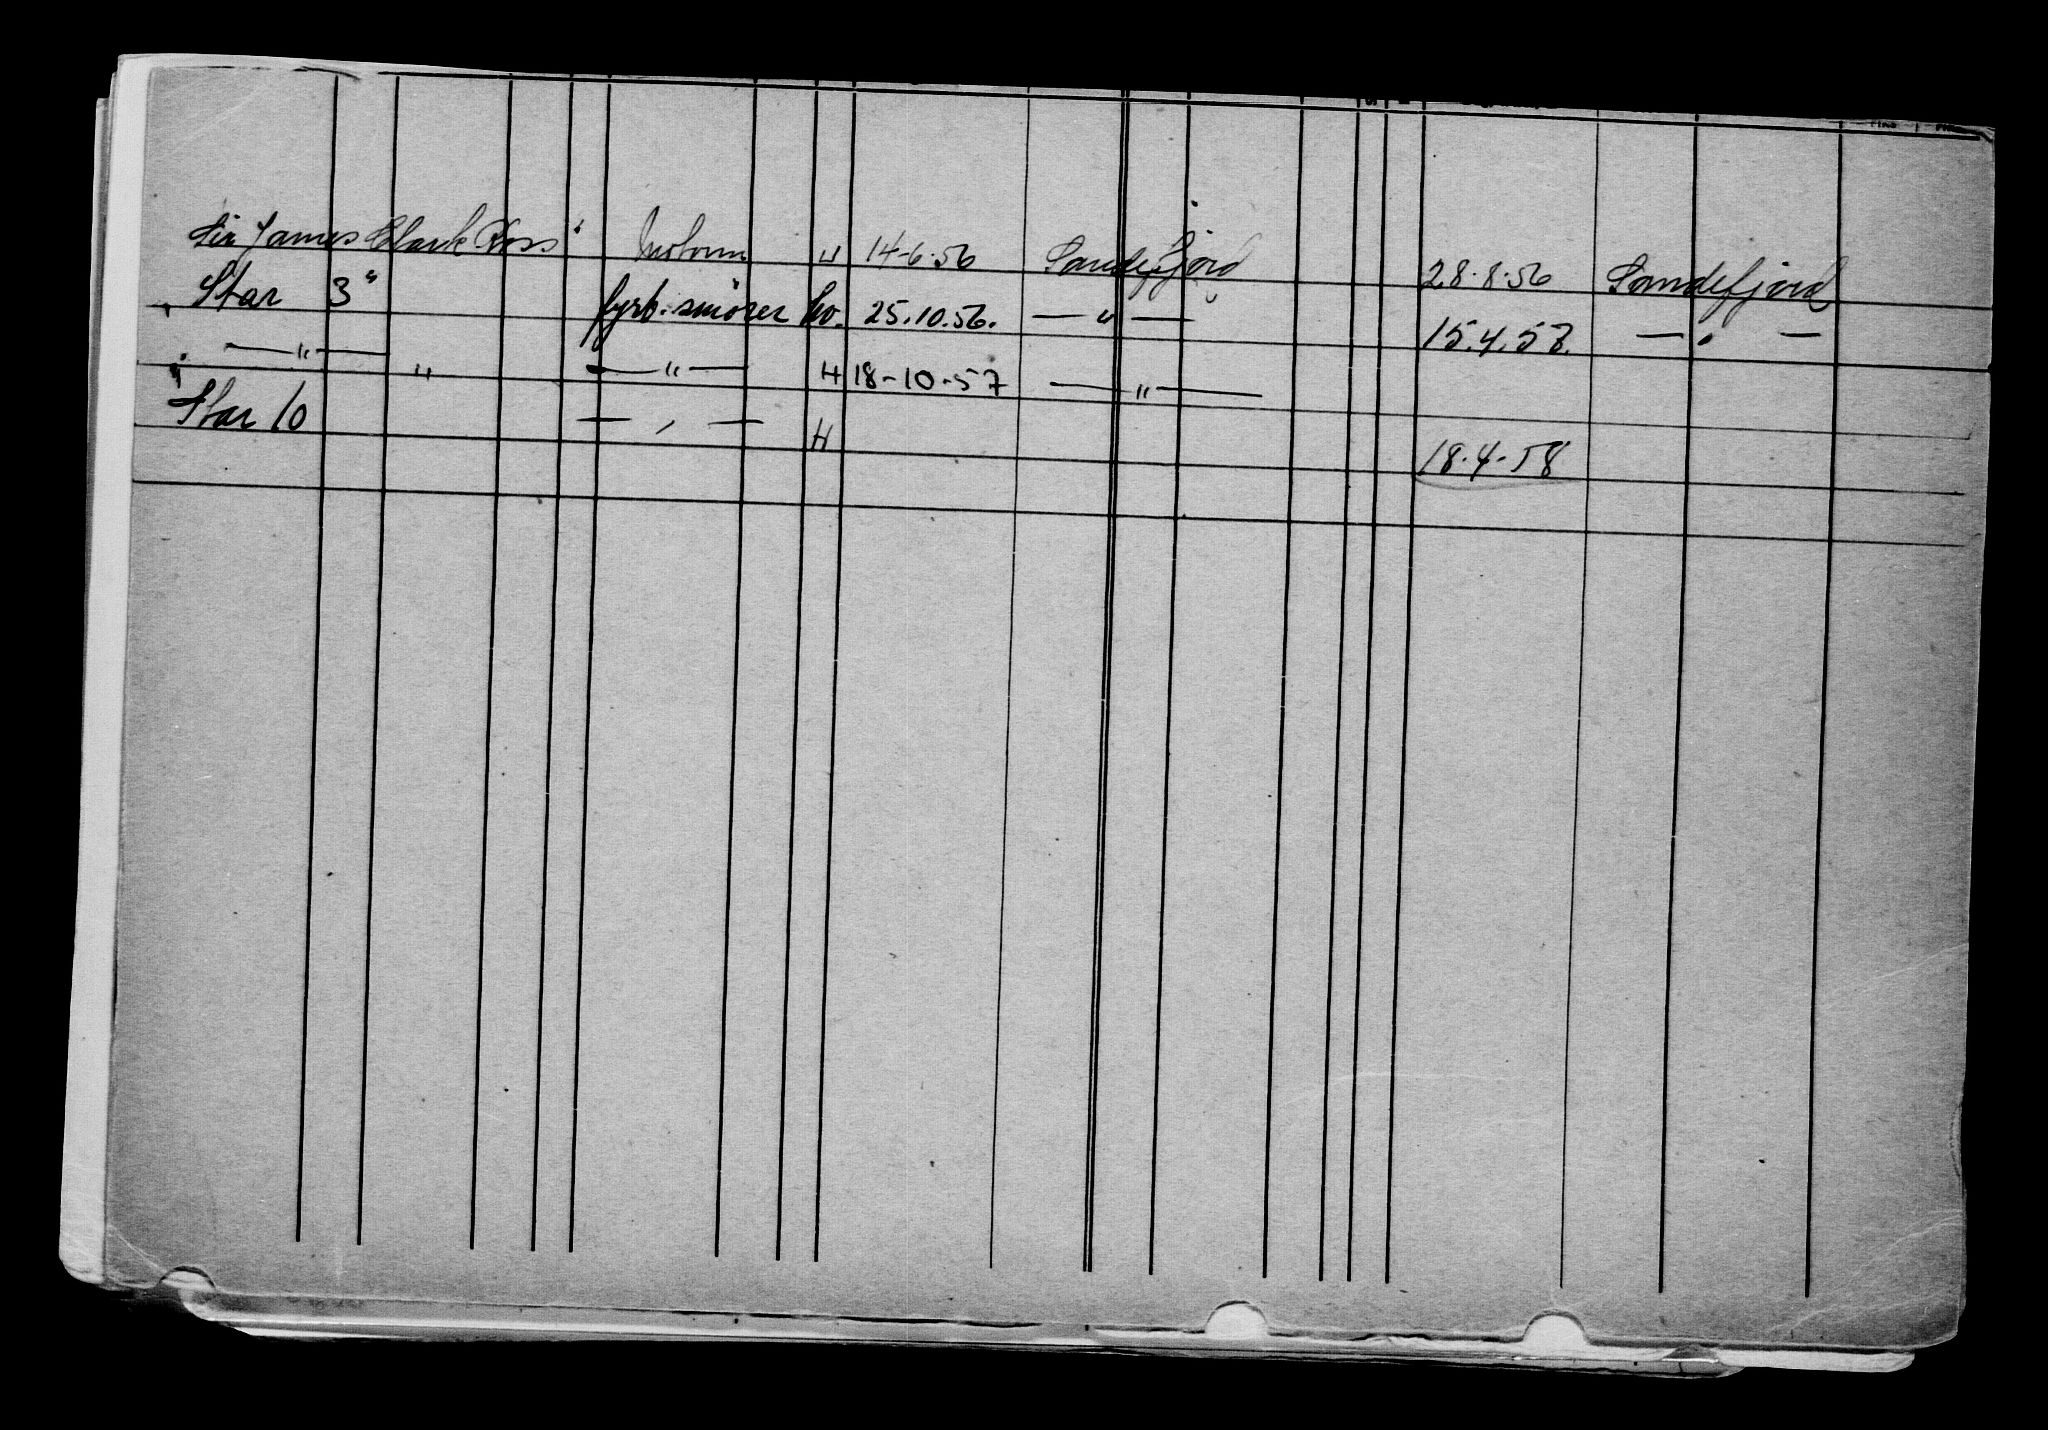 Sir James Clark Ross" Motorm H 14-6.56 Sandefjord 28.8.56 Sandefjord
Star 3" fyrb.smører ho. 25.10.56. — " — 15.4.57. — " —
— " — " — " — H 18-10-57 — " —
"Star 10 — " — H 18.4-58